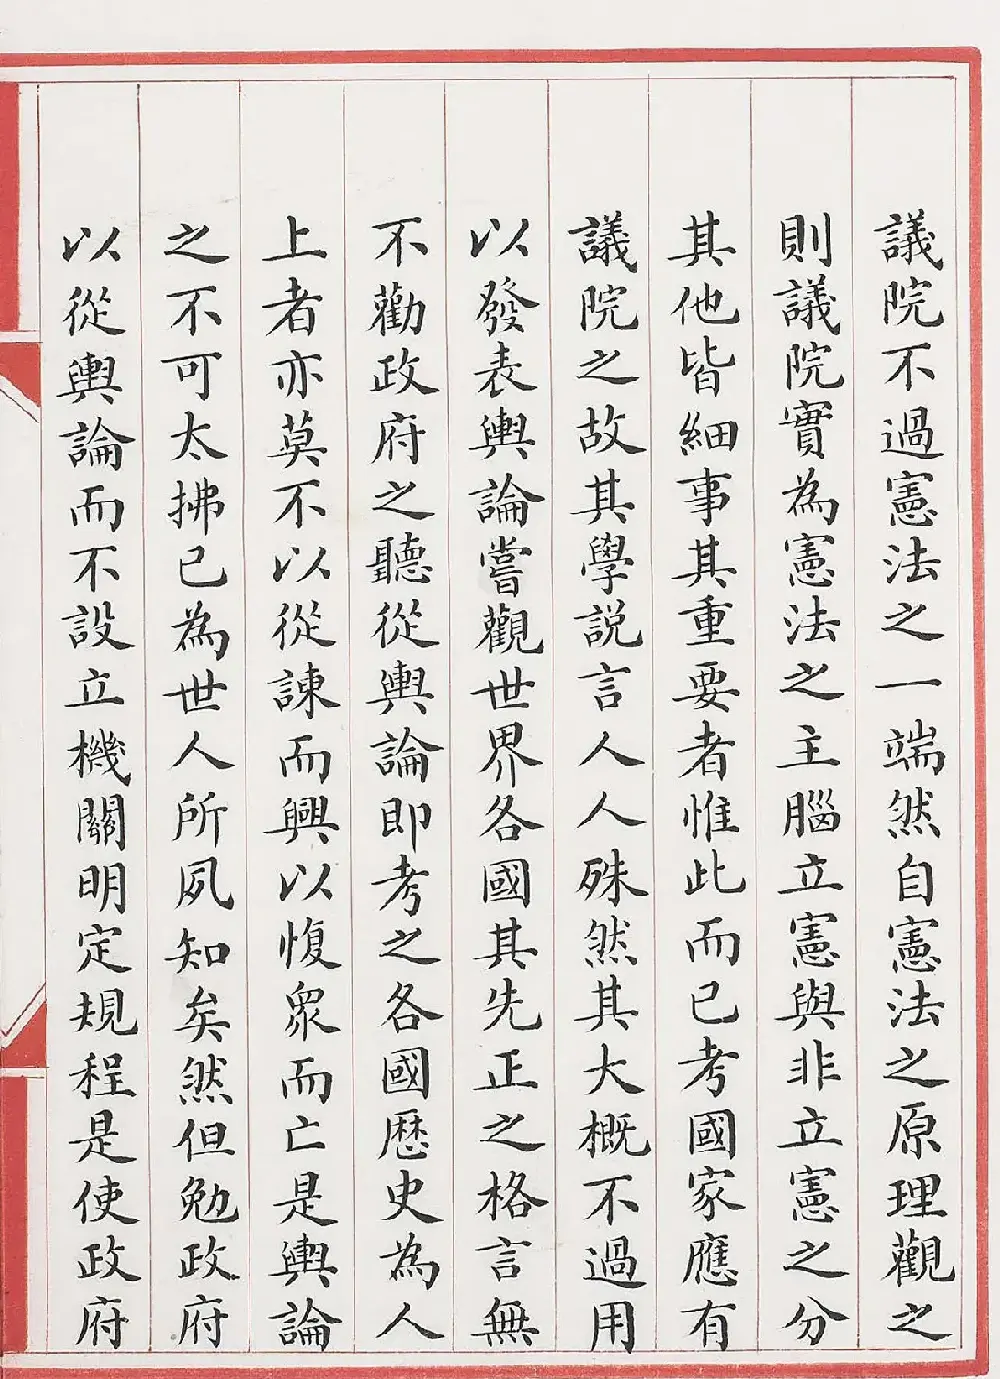 議院不過憲法之一端然自憲法之原理觀之
則議院實為憲法之主腦立憲與非立憲之分
其他皆細事其重要者惟此而已考國家應有
議院之故其學説言人人殊然其大概不過用
以發表輿論嘗觀世界各國其先正之格言無
不勸政府之聽從輿論即考之各國歷史為人
上者亦莫不以從諫而興以愎眾而亡是輿論
之不可太拂已為世人所夙知矣然但勉政府
以從輿論而不設立機關明定規程是使政府